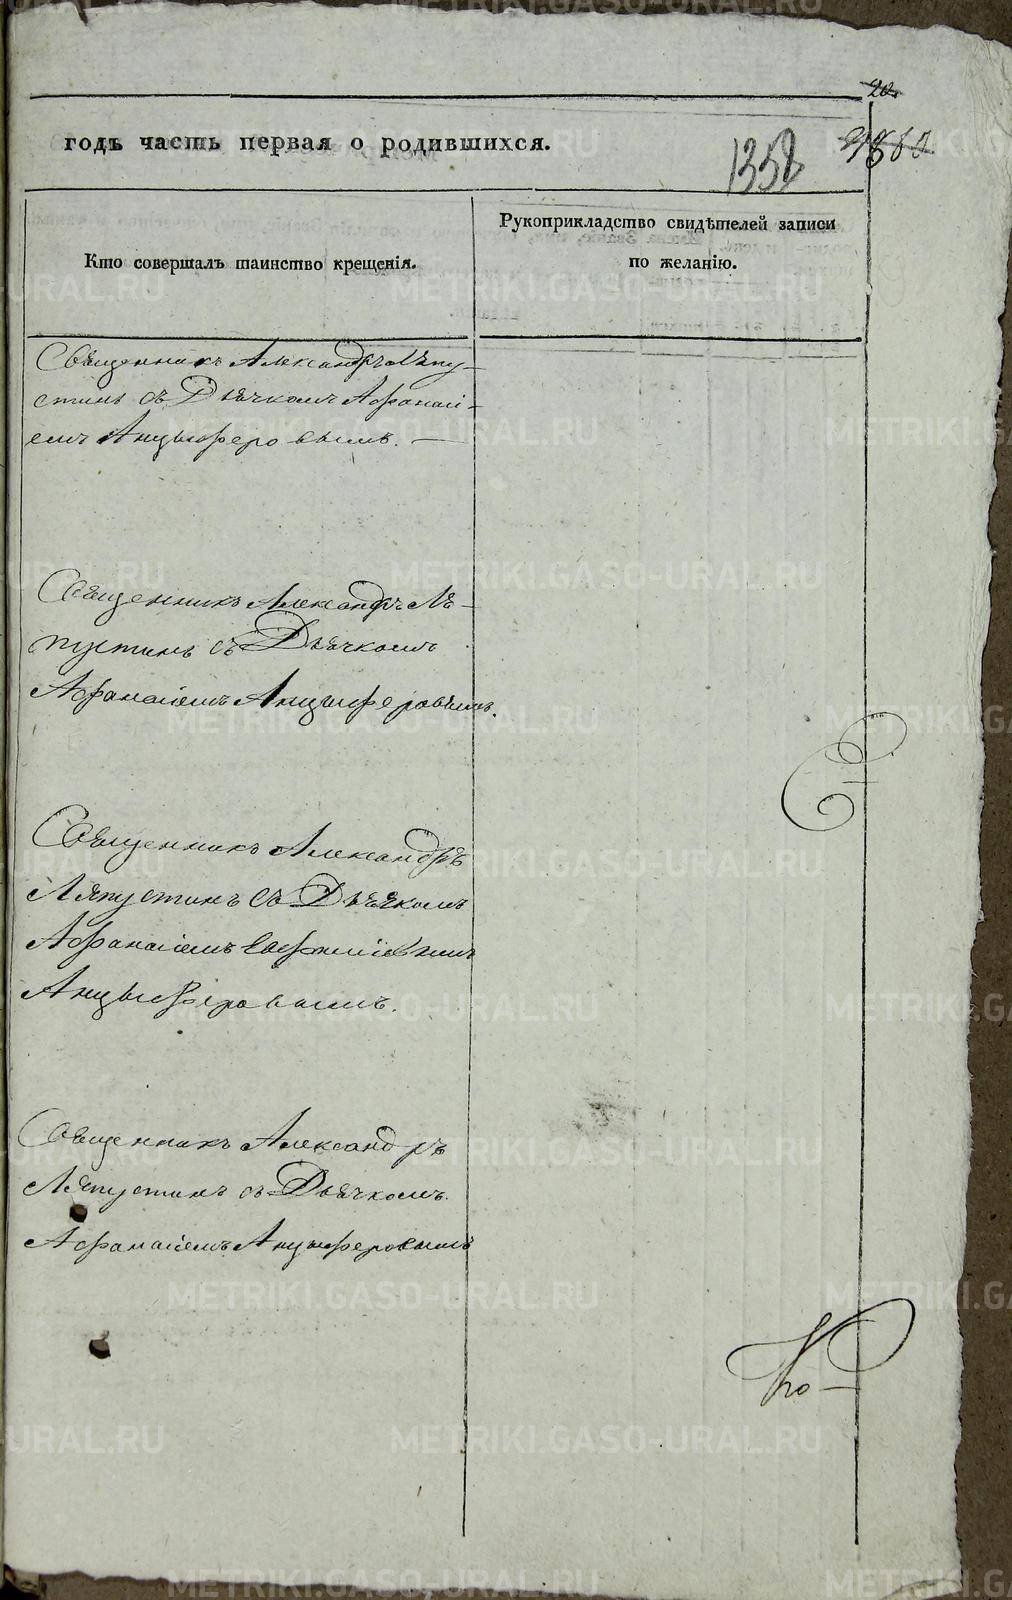 20.
годъ часть первая о родившихся.
1358
Кто совершалъ таинство крещенія.
Рукоприкладство свидѣтелей записи
по желанію.
Священникъ Александръ Ляпу-
стинъ съ Дьячкомъ Афанасі-
емъ Анцыферовымъ. —
Священникъ Александръ Ля-
пустинъ съ Дьячкомъ
Афанасіемъ Анцыферовымъ.
Священникъ Александръ
Ляпустинъ съ Дьячкомъ
Афанасіемъ
Анцыферовымъ.
Священникъ Александръ
Ляпустинъ съ Дьячкомъ.
Афанасіемъ Анцыферовымъ
по-
METRIKI.GASO-URAL.RU